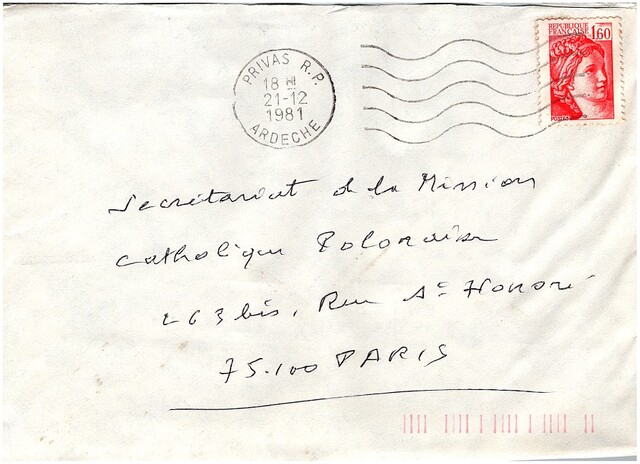 REPUBLIQUE
FRANCAISE
1,60
POSTES
PRIVAS R.P.
18 H
21-12
1981
ARDECHE
Secrétariat de la Mission
Catholique Polonaise
263 bis, Rue St Honoré
75.100 PARIS